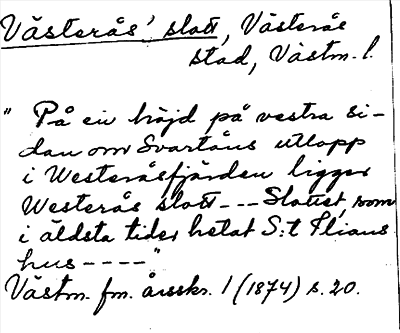 Västerås' slott, Västerås
stad, Västm. l.
" På en höjd på vestra si-
dan om Svartåns utlopp
i Westeråsfjärden ligger
Westerås slott --- Slottet, som
i äldsta tider hetat S:t Ilians
hus ---- "
Västm. fm. årsskr. 1 (1874) s. 20.